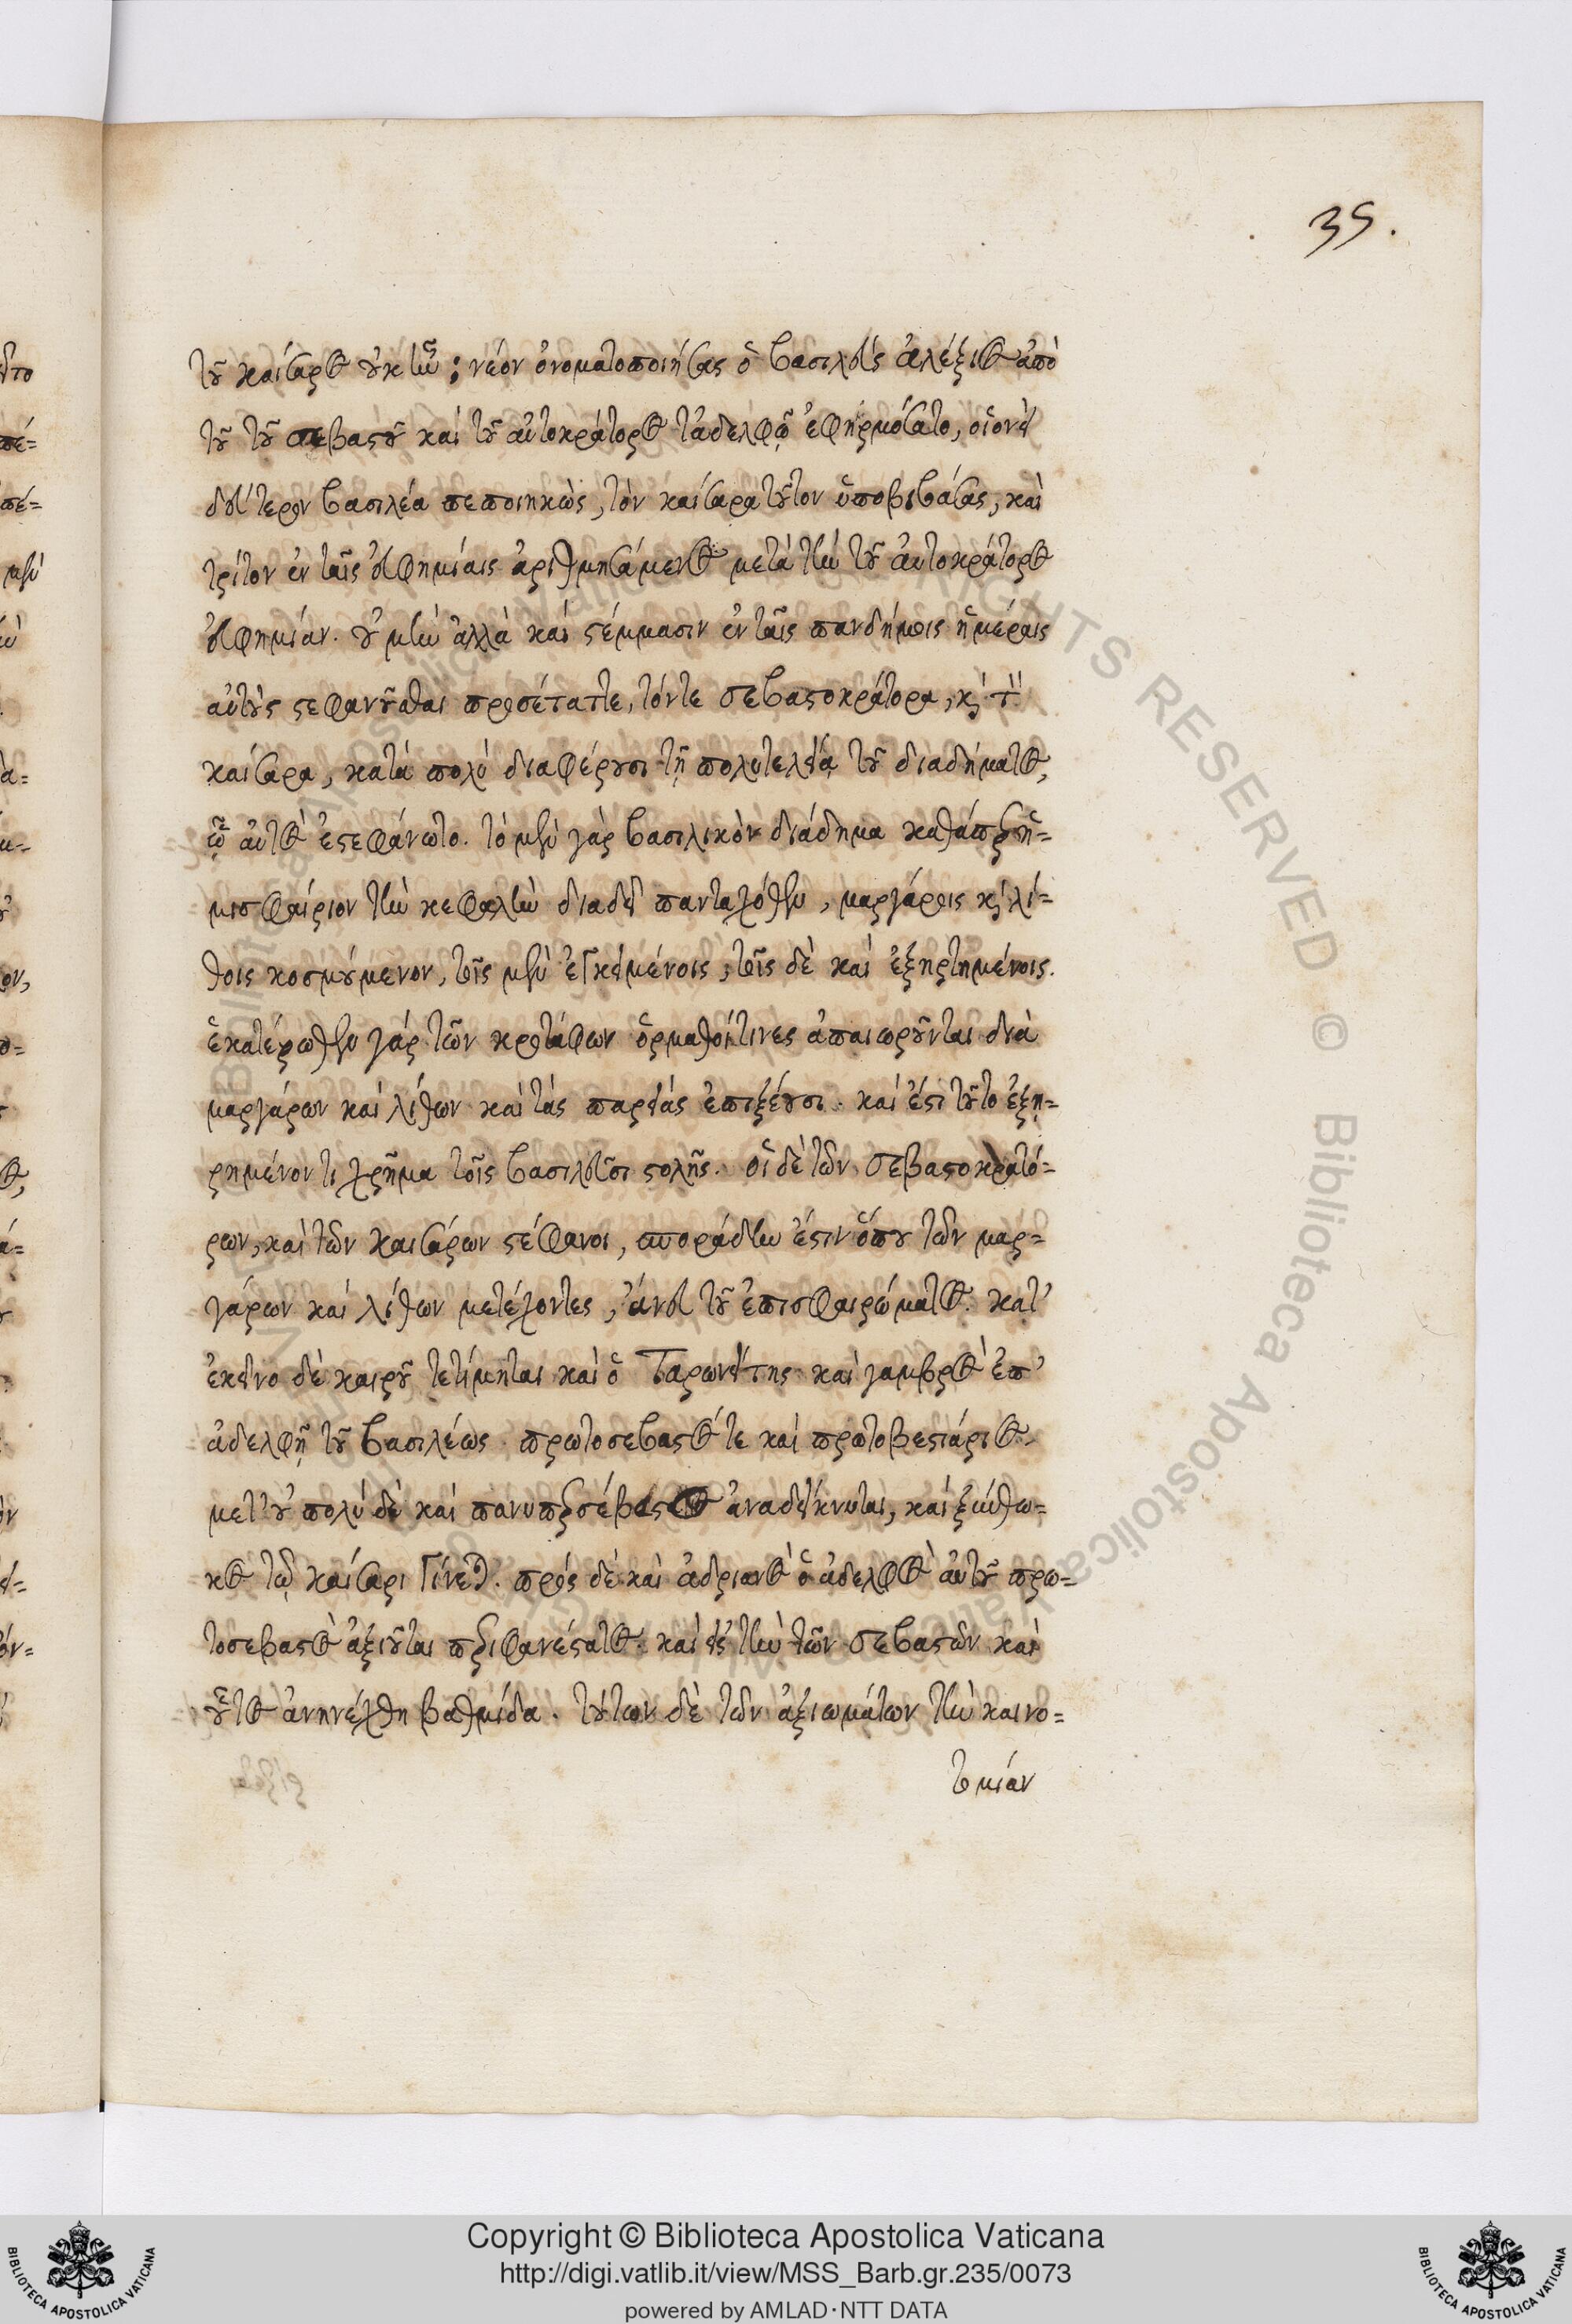 35.
τοῦ καίσαρος οὐκ ἦν; νέον ὀνοματοποιήσας ὁ βασιλεὺς ἀλέξιος ἀπὸ
τοῦ τοῦ σεβαστοῦ καὶ τοῦ αὐτοκράτορος τἀδελφῷ ἐφηρμόσατο, οἱονεὶ
δεύτερον βασιλέα πεποιηκὼς, τὸν καίσαρα τοῦτον ὑποβιβάσας, καὶ
τρίτον ἐν ταῖς εὐφημίαις ἀριθμησάμενος μετὰ τὴν τοῦ αὐτοκράτορος
εὐφημίαν. οὐ μὴν ἀλλὰ καὶ στέμμασιν ἐν ταῖς πανδήμοις ἡμέραις
αὐτοὺς στεφανοῦσθαι προσέταττε, τόντε σεβαστοκράτορα, καὶ τὸν
καίσαρα, κατὰ πολὺ διαφέρουσι τῇ πολυτελείᾳ τοῦ διαδήματος,
ᾧ αὐτὸς ἐστεφάνωτο. τὸ μὲν γὰρ βασιλικὸν διάδημα καθάπερ ἡ=
μισφαίριον τὴν κεφαλὴν διαδεῖ πανταχόθεν, μαργάροις καὶ λί=
θοις κοσμούμενον, τοῖς μὲν ἐγκειμένοις, τοῖς δὲ καὶ ἐξηρτημένοις.
ἑκατέρωθεν γὰρ τῶν κροτάφων ὁρμαθοί τινες ἀπαιωροῦνται διὰ
μαργάρων καὶ λίθων καὶ τὰς παρειὰς ἐπιξέουσι. καὶ ἐστὶ τοῦτο ἐξῃ=
ρημένον τι χρῆμα τοῖς βασιλεῦσι στολῆς. οἱ δὲ τῶν σεβαστοκρατό=
ρων, καὶ τῶν καισάρων στέφανοι, σποράδην ἐστὶν ὅπου τῶν μαρ=
γάρων καὶ λίθων μετέχοντες, ἄνευ τοῦ ἐπισφαιρώματος. κατ'
ἐκεῖνο δὲ καιροῦ τετίμηται καὶ ὁ Ταρωνείτης καὶ γαμβρὸς ἐπ'
ἀδελφῇ τοῦ βασιλέως πρωτοσεβαστός τε καὶ πρωτοβεστιάριος.
μετ' οὐ πολὺ δὲ καὶ πανυπερσέβαστος ἀναδείκνυται, καὶ ξύνθω=
κος τῷ καίσαρι γίνεται. πρὸς δὲ καὶ ἀδριανὸς ὁ ἀδελφὸς αὐτοῦ πρω=
τοσεβαστὸς ἀξιοῦται περιφανέστατος. καὶ εἰς τὴν τῶν σεβαστῶν καὶ
οὗτος ἀνηνέχθη βαθμίδα. τούτων δὲ τῶν ἀξιωμάτων τὴν καινο=
τομίαν
Copyright © Biblioteca Apostolica Vaticana
http://digi.vatlib.it/view/MSS_Barb.gr.235/0073
powered by AMLAD·NTT DATA